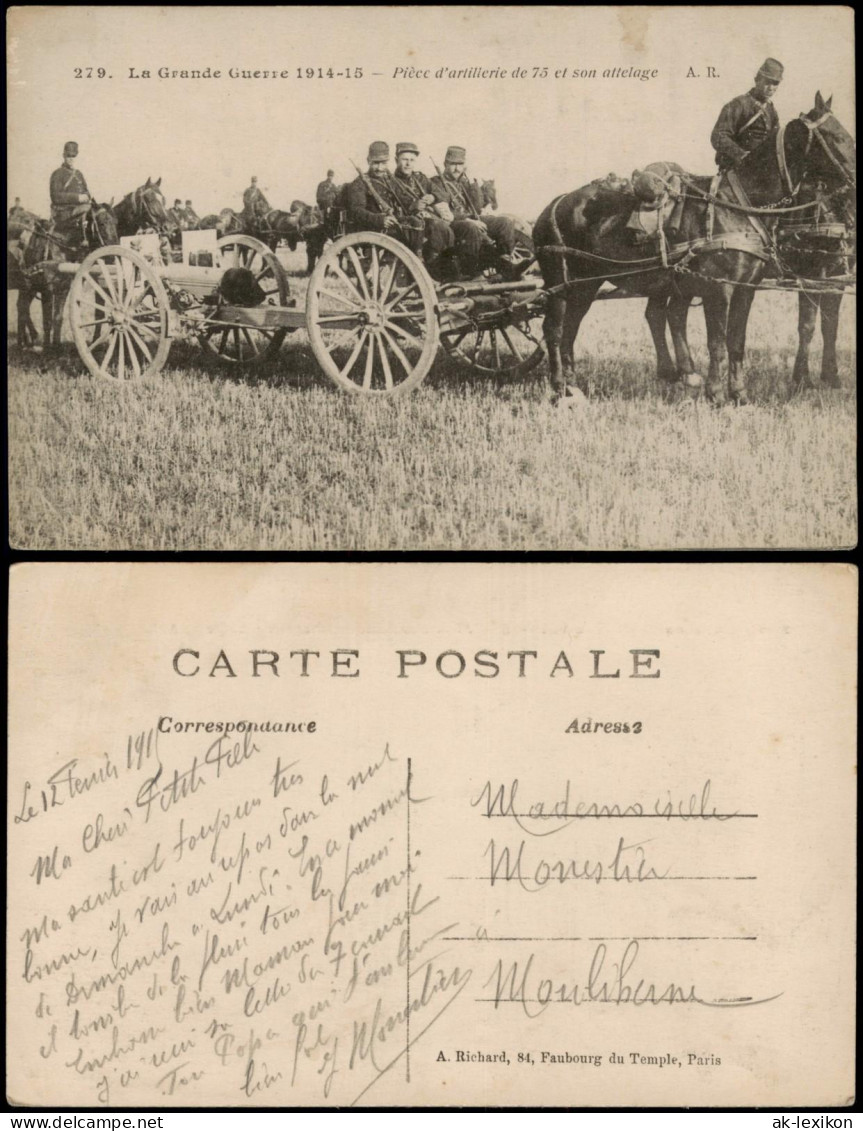 279. La Grande Guerre 1914-15 – Pièce d'artillerie de 75 et son attelage A. R.
CARTE POSTALE
Correspondance
Adresse
Le 12 Fevrier 1915
Ma Cheri Petite Fille
Ma santé est toujours tres
bonne, je vais au repos dans la nuit
de Dimanche a Lundi. En ce moment
il tombe de la pluie tous les jours
Embrasse bien Maman pour moi.
j'ai reçu sa lettre du 7 courant
Ton Papa qui t'aime
bien fort
J Monestier
Mademoiselle
Monestier
à
Mouliherne
A. Richard, 84, Faubourg du Temple, Paris
ak-lexikon.de
ak-lexikon